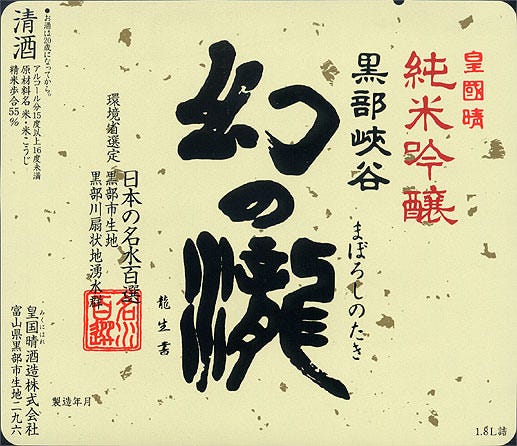 皇國晴
純米吟醸
黒部峡谷
まぼろしのたき
幻の瀧
龍生書
日本の名水百選
環境省選定
黒部市生地
黒部川扇状地湧水群
名水
百選
●お酒は20歳になってから。
清酒
アルコール分15度以上16度未満
原材料名 米・米こうじ
精米歩合55%
みくにはれ
皇国晴酒造株式会社
富山県黒部市生地二九六
製造年月
1.8L詰